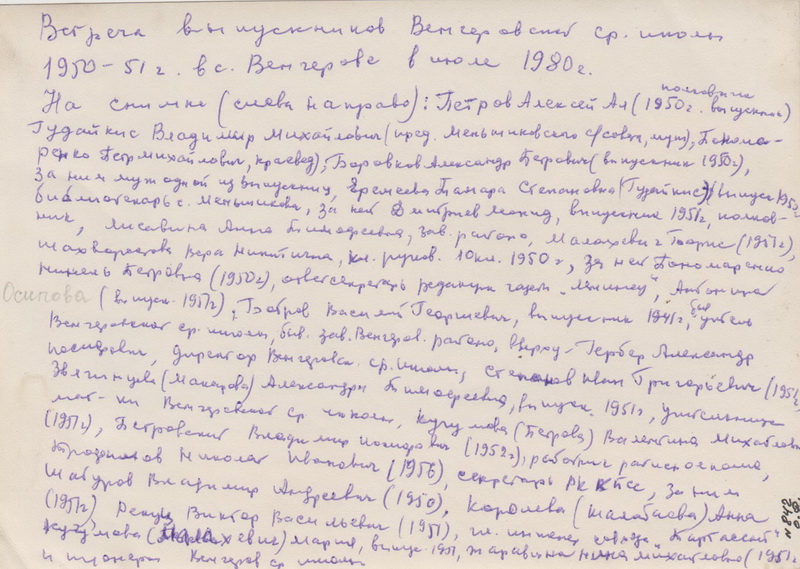 Встреча выпускников Венгеровской ср. школы
1950-51 г. в с. Венгерове в июле 1980 г.
полковник
На снимке (слева направо): Петров Алексей Ал (1950 г. выпускник)
Гудайкис Владимир Михайлович (пред. Меньшиковского с/совета, муж), Понома-
ренко Петр Михайлович, краевед), Боровков Александр Петрович (выпускник 1950г),
за ним муж одной из выпускниц, Еремеева Тамара Степановна (Гудайкис) (выпуск 1950
библиотекарь с. Меньшикова, за ней Дмитриев Леонид, выпускник 1951г, полков-
ник, Лисавина Анна Тимофеевна, зав. районо, Малахевич Борис (1951г),
Шахворостова Вера Никитична, кл. руков. 10 кл. 1950 г, за ней Пономаренко
Нинель Петровна (1950г), ответсекретарь редакции газеты „Ленинец", Антонина
Осипова (выпуск. 1951г), Бобров Василий Георгиевич, выпускник 1941г, был учитель
Венгеровской ср. школы, быв. зав. Венгеров. районо, вверху - Гербер Александр
Иосифович, директор Венгеровск. ср. школы, Степанов Иван Григорьевич (1951г
Звягинцева (Макарова) Александра Тимофеевна, выпуск. 1951г, учительница
мат-ки Венгеровской ср. школы, Кучумова (Петрова) Валентина Михайловна
(1951г), Петровский Владимир Иосифович (1952г), работник райисполкома,
Трофимов Николай Иванович (1956), секретарь РК КПСС, за ним
Шабуров Владимир Андреевич (1950), Королева (Малабаева) Анна
(1951г) Виктор Васильевич (1951), гл. инженер совхоза
Кучумова (Малахевич) Мария, выпуск 1951, Жаравина Нина Михайловна (1951г
и пионеры Венгеров ср школы
н 842